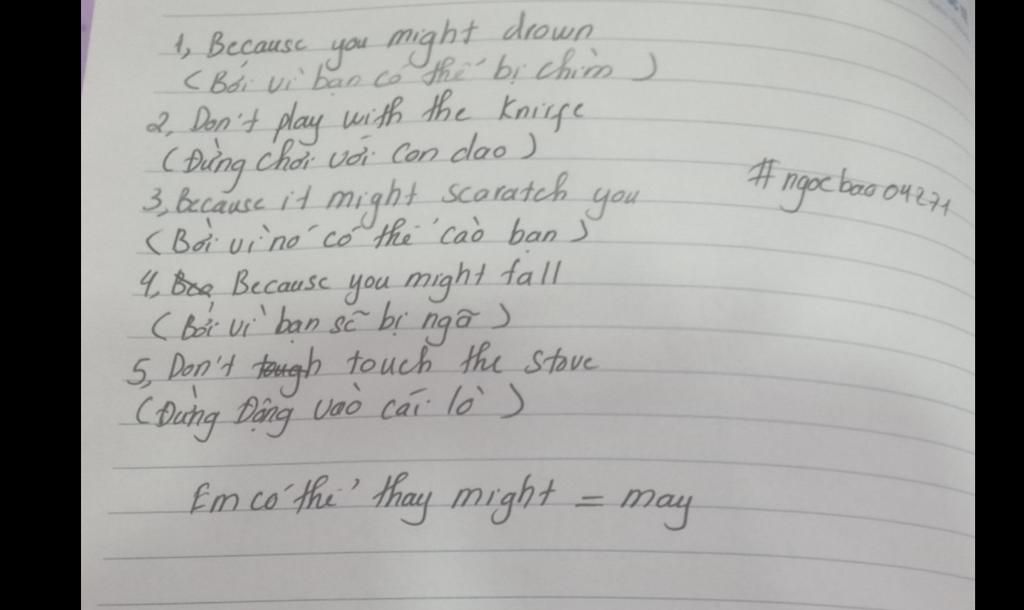 1, Because you might drown
(Bởi vì bạn có thể bị chìm)
2, Don't play with the Knirfe
(Đừng chơi với con dao)
#ngocbao04271
3, Because it might scaratch you
(Bởi vì nó có thể cào bạn)
4, Because you might fall
(Bởi vì bạn sẽ bị ngã)
5, Don't touch the stove
(Đừng Động vào cái lò)
Em có thể thay might = may